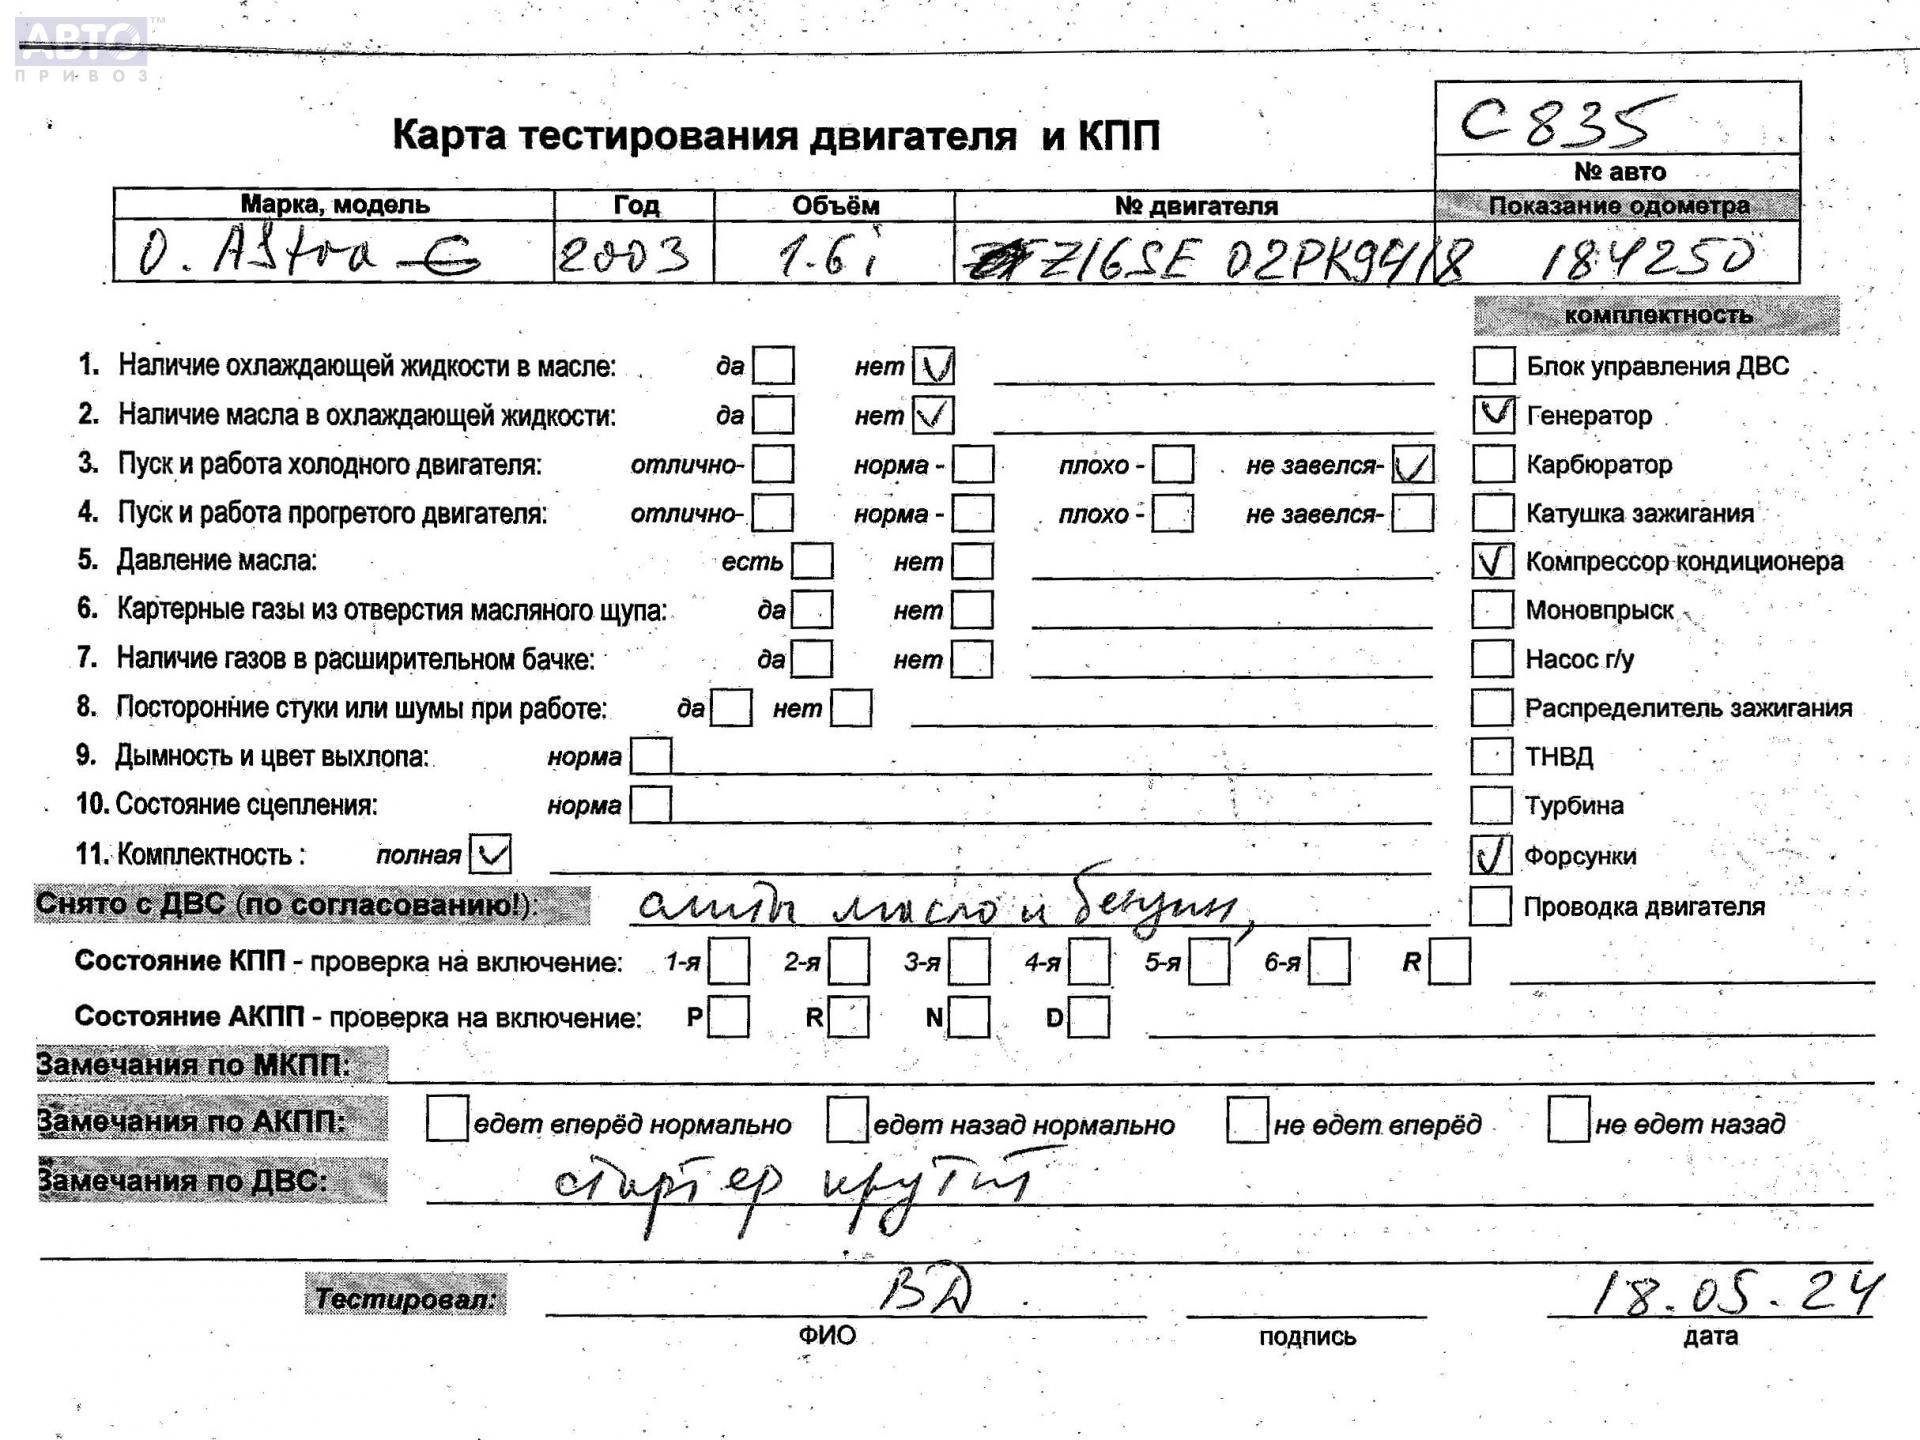 АВТО™
ПРИВОЗ
С 835
Карта тестирования двигателя и КПП
№ авто
Марка, модель Год Объём № двигателя Показание одометра
O. Astra G 2003 1.6i Z16SE 02PK9418 184250
комплектность
1. Наличие охлаждающей жидкости в масле: да нет Блок управления ДВС
2. Наличие масла в охлаждающей жидкости: да нет Генератор
3. Пуск и работа холодного двигателя: отлично- норма - плохо - не завелся- Карбюратор
4. Пуск и работа прогретого двигателя: отлично- норма - плохо - не завелся- Катушка зажигания
5. Давление масла: есть нет Компрессор кондиционера
6. Картерные газы из отверстия масляного щупа: да нет Моновпрыск
7. Наличие газов в расширительном бачке: да нет Насос г/у
8. Посторонние стуки или шумы при работе: да нет Распределитель зажигания
9. Дымность и цвет выхлопа: норма ТНВД
10. Состояние сцепления: норма Турбина
11. Комплектность : полная Форсунки
Снято с ДВС (по согласованию!): слиты масло и бензин, Проводка двигателя
Состояние КПП - проверка на включение: 1-я 2-я 3-я 4-я 5-я 6-я R
Состояние АКПП - проверка на включение: P R N D
Замечания по МКПП:
Замечания по АКПП: едет вперёд нормально едет назад нормально не едет вперёд не едет назад
Замечания по ДВС: стартер крутит
Тестировал: ВД 18.05.24
ФИО подпись дата